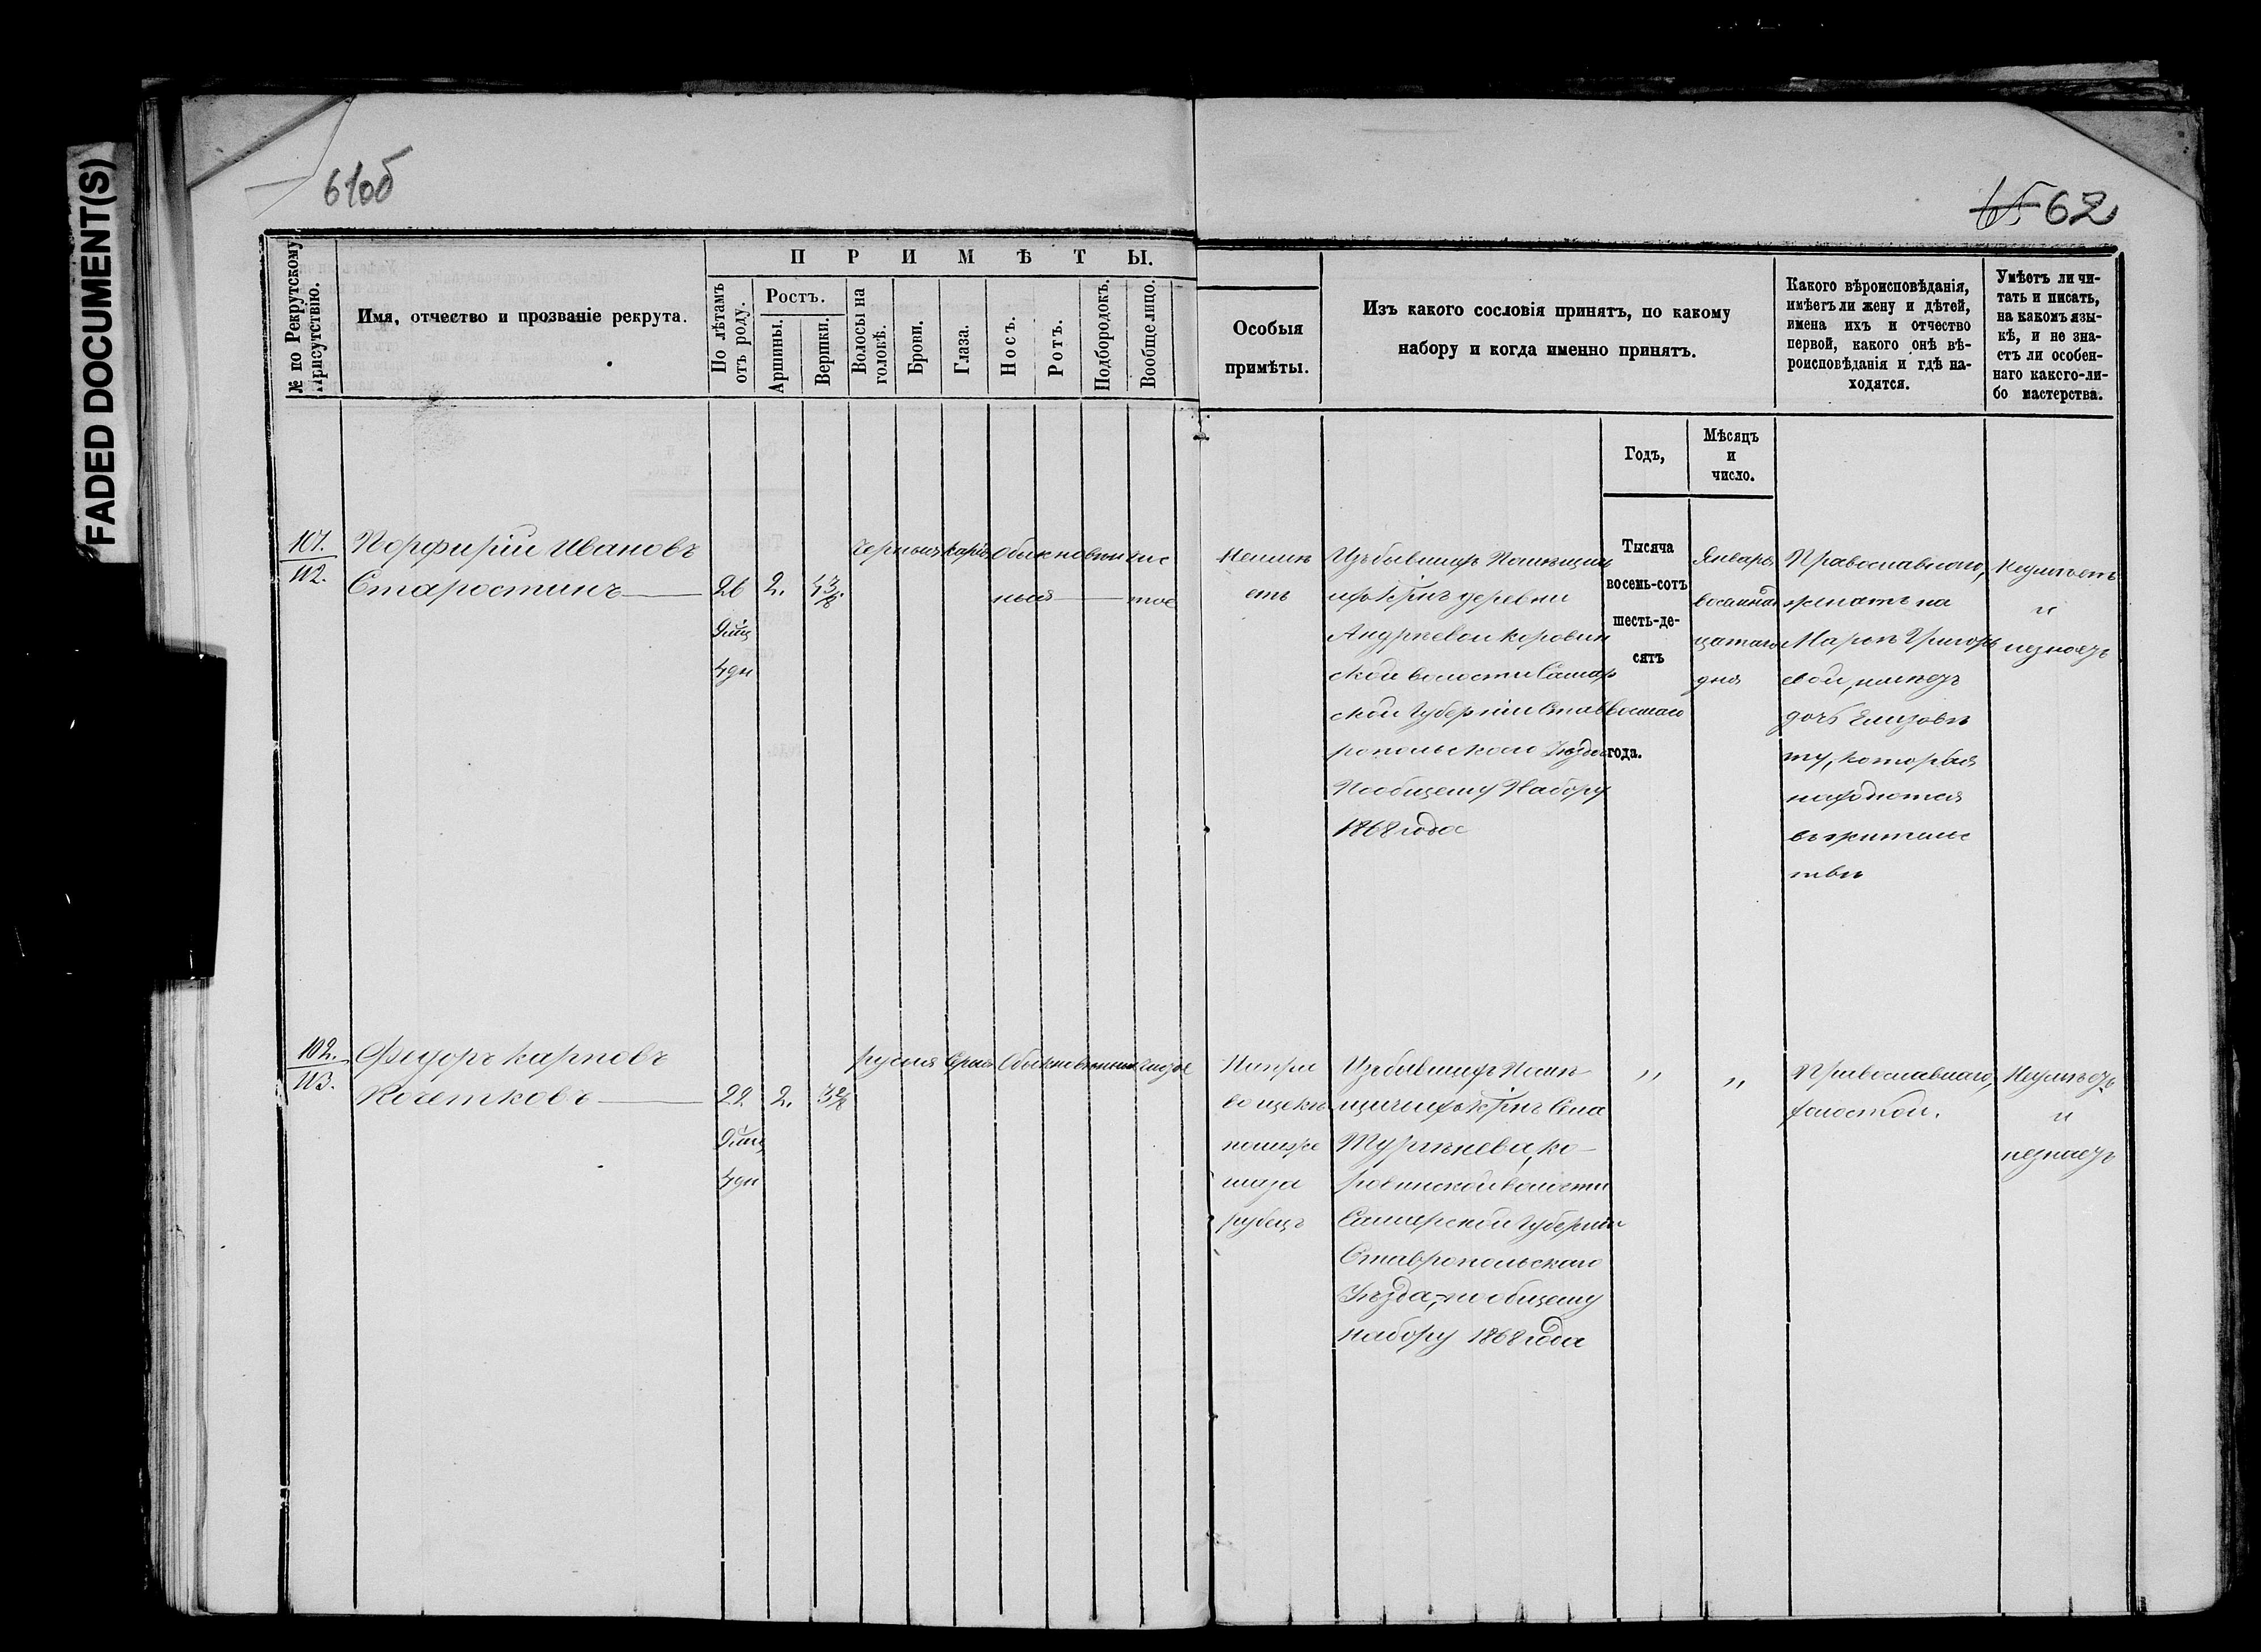 FADED DOCUMENT(S)
61об
62
№ по Рекрутскому Присутствію.
Имя, отчество и прозваніе рекрута.
ПРИМѢТЫ.
По лѣтамъ отъ роду.
Ростъ.
Аршины.
Вершки.
Волосы на головѣ.
Брови.
Глаза.
Носъ.
Ротъ.
Подбородокъ.
Вообще лицо.
Особыя
примѣты.
Изъ какого сословія принятъ, по какому
набору и когда именно принятъ.
Какого вѣроисповѣданія,
имѣетъ ли жену и дѣтей,
имена ихъ и отчество
первой, какого онѣ вѣ-
роисповѣданія и гдѣ на-
ходятся.
Умѣетъ ли чи-
тать и писать,
на какомъ язы-
кѣ, и не зна-
етъ ли особен-
наго какого-ли-
бо мастерства.
Годъ,
Мѣсяцъ
и
число.
101.
112.
Порфирій Ивановъ
Старостинъ
26
2.
черные
карiе
обыкновен
ный
чис
тое
Неимѣ
етъ
Изъ бывшихъ Помѣщичь
ихъ Кр҃нъ деревни
Андреевой Коровин
ской волости Самар
ской Губерніи Став
ропольскаго Уѣзда
По общему Набору
1868 года
Тысяча
восемь-сотъ
шесть-де-
сятъ
восьмаго
года.
Января
восьмнад
цатаго
дня
Православнаго,
женатъ на
Марьѣ Григорь
евой, имѣетъ
дочь Елизавѣ
ту, которыя
находятся
въ жительс
твѣ
Неумѣетъ
и
незнаетъ
102.
113.
Федоръ Карповъ
Кочетковъ
22
2.
русые
Серые
Обыкновенный
чистое
На пра
во щекѣ
пониже
глаза
рубецъ
Изъ бывшихъ Помѣ-
щичихъ Кр҃нъ Села
Тургенева, Ко-
ровинской волости
Самарской Губерніи
Ставропольскаго
Уѣзда, по общему
набору 1868 года
"
"
Православнаго,
холостой.
Неумѣетъ
и
незнаетъ